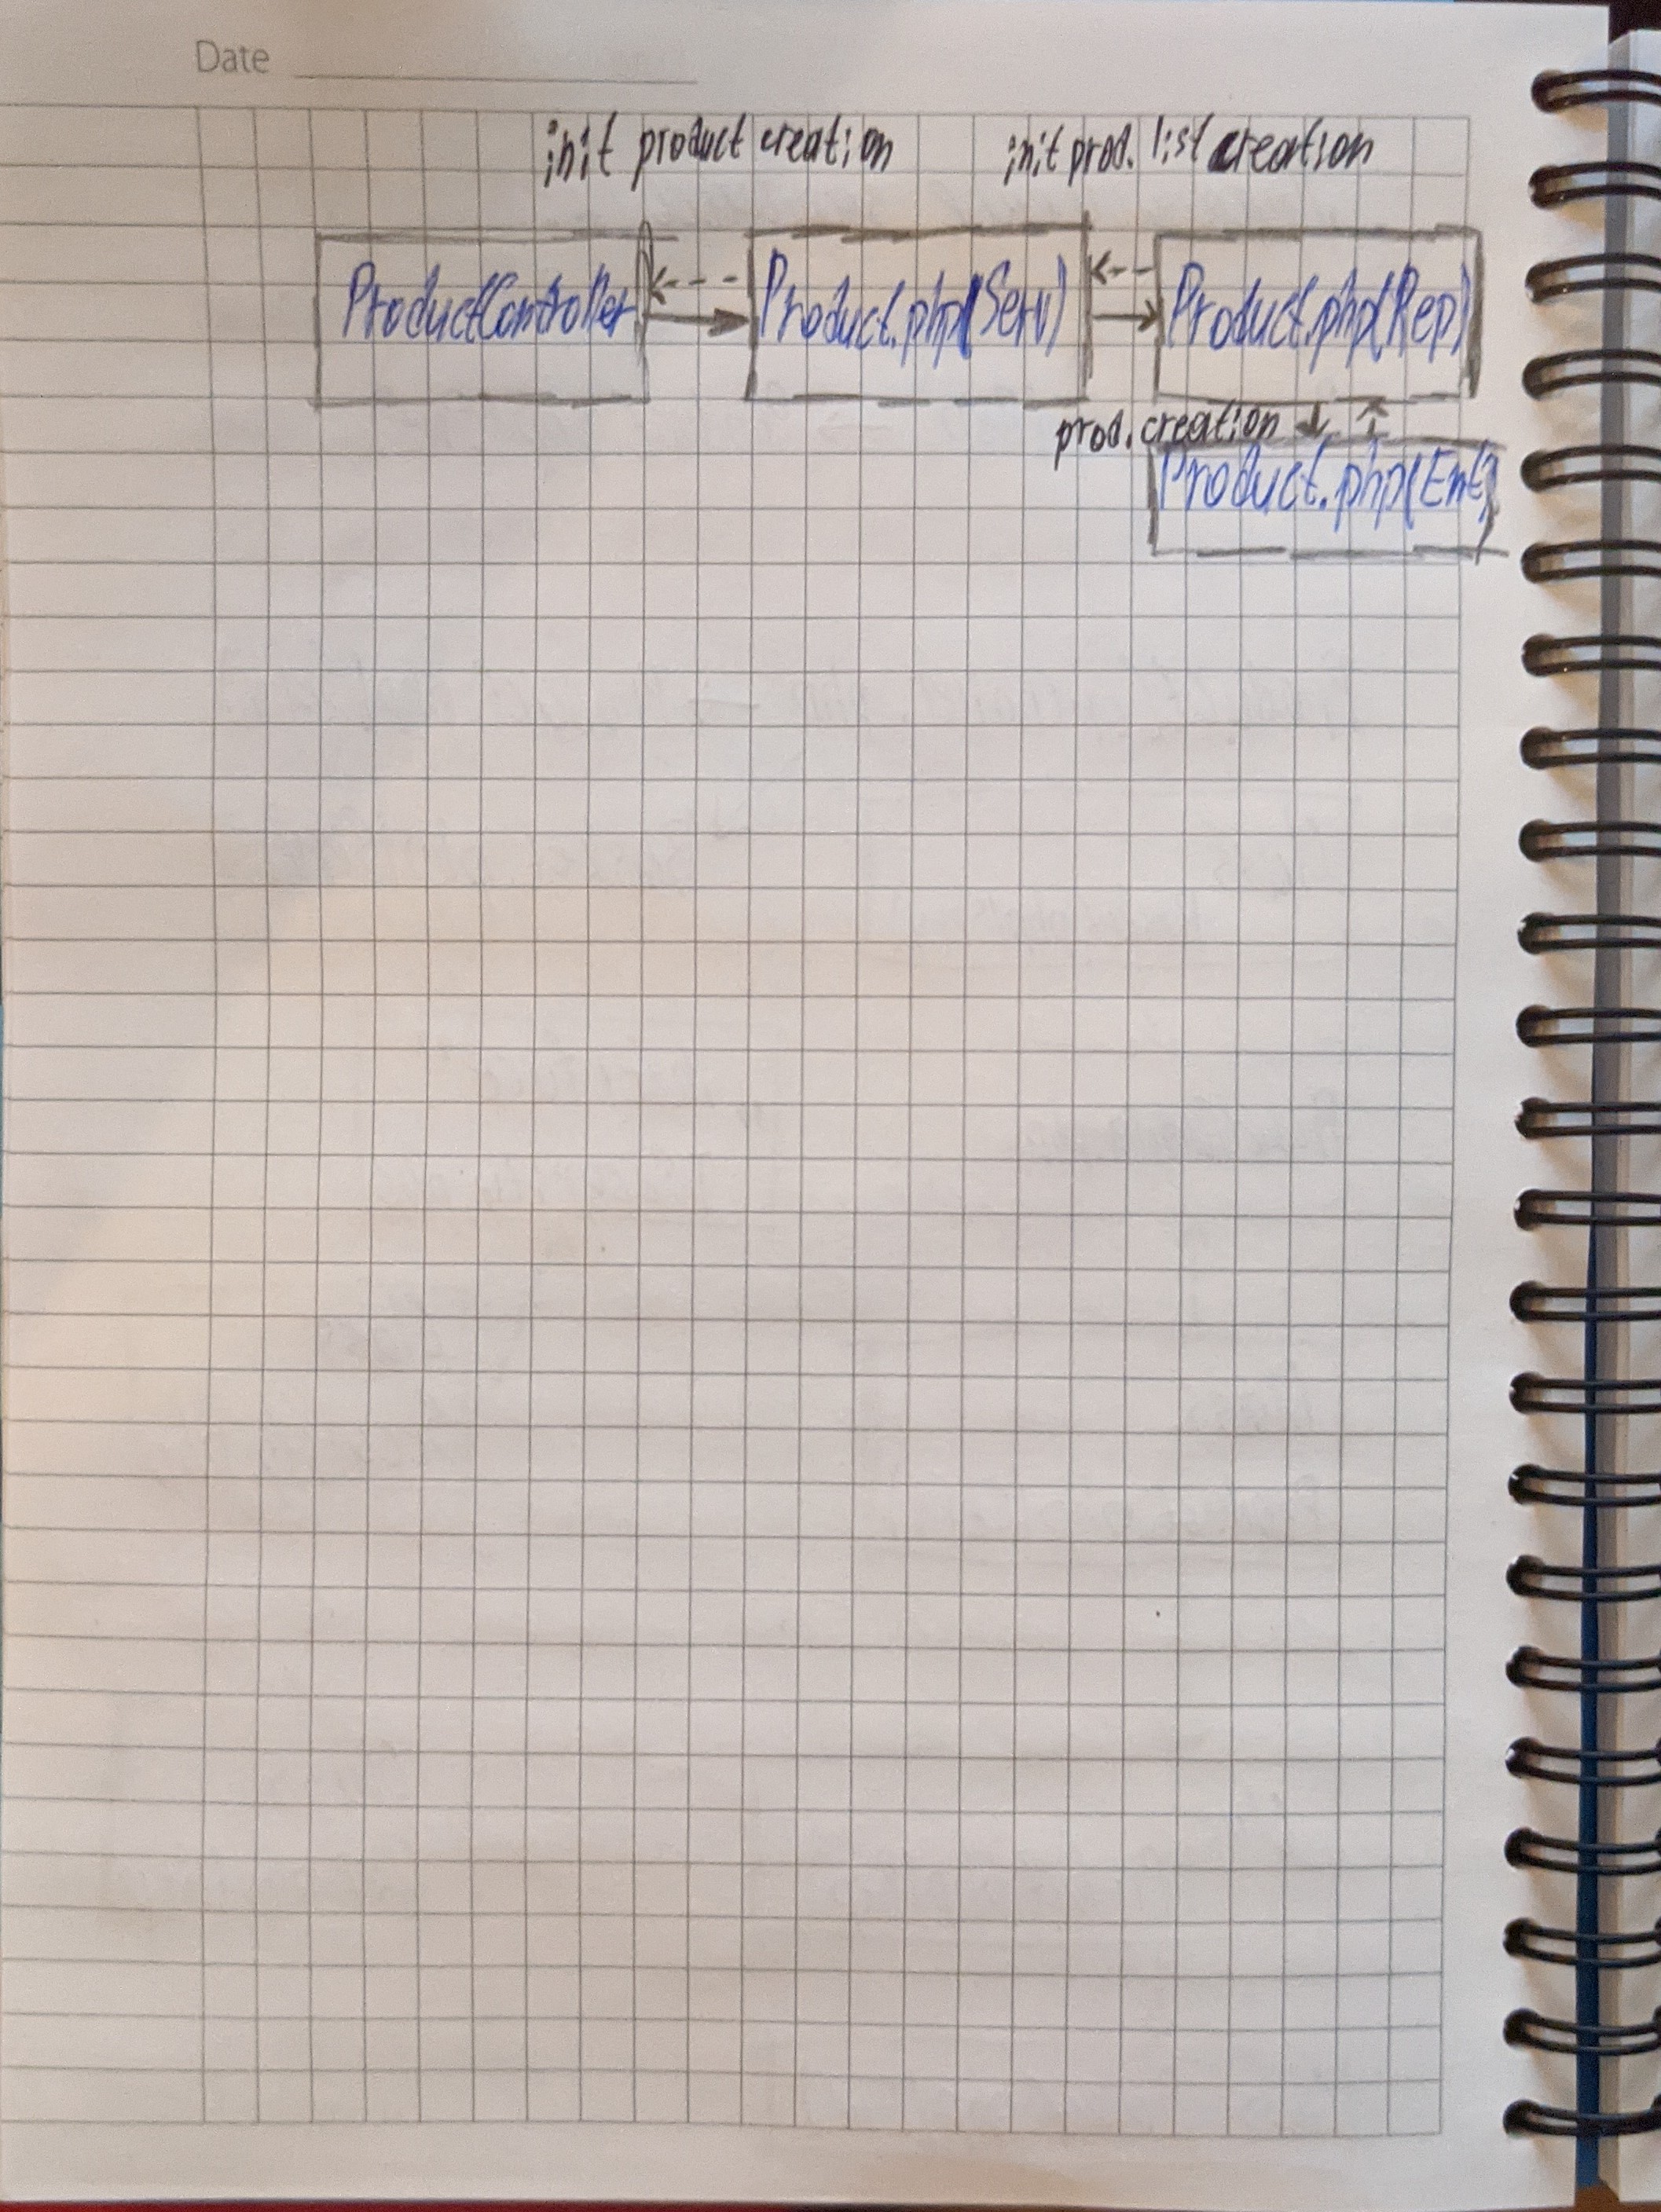 Date
init product creation init prod. list creation
ProductController Product.php(Serv) Product.php(Rep)
prod. creation
Product.php(Ent)